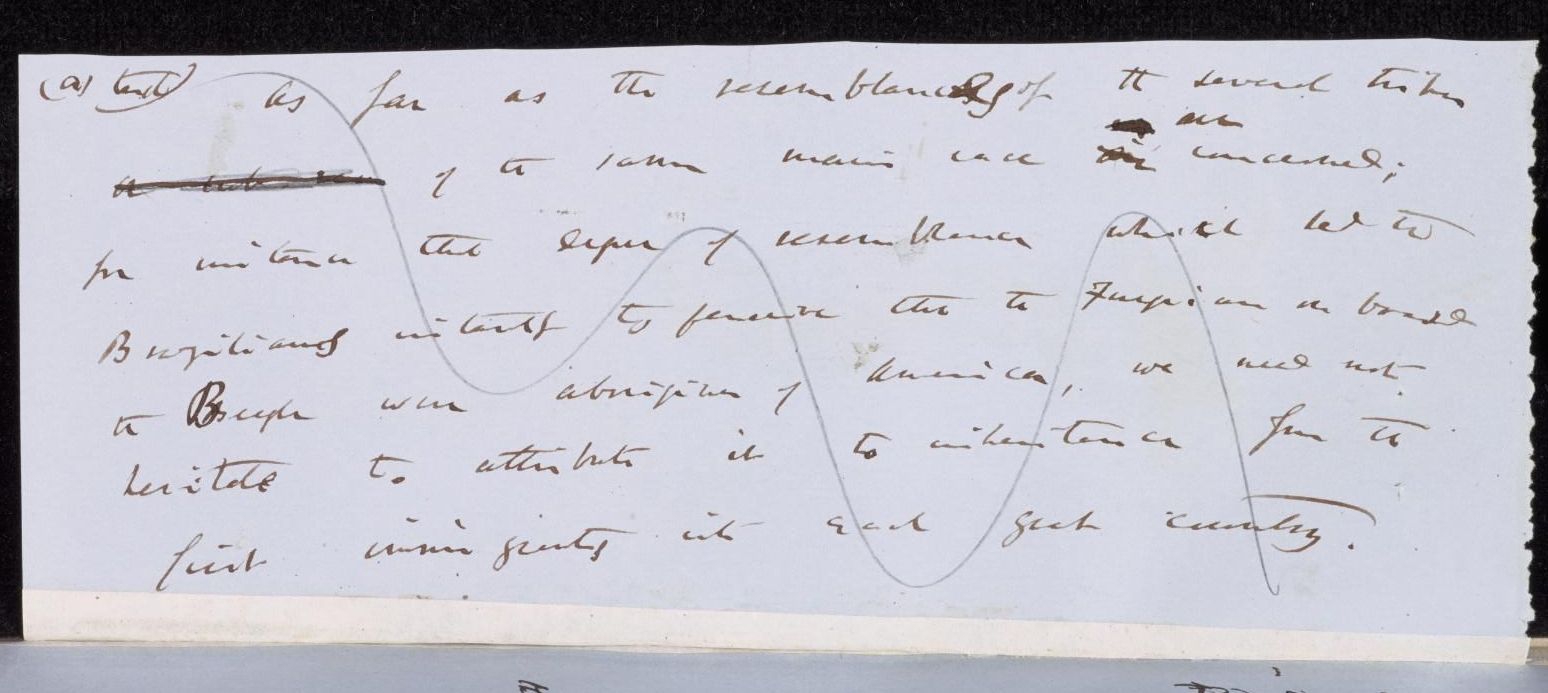 (a) text) As far as the resemblances of the several tribes
are
of the same main race concerned;
for instance the degree of resemblance which led the
Brazilians instantly to perceive that the Fuegians on board
the Beagle were aborigines of America, we need not
hesitate to attribute it to inheritance from the
first immigrants into each great country.